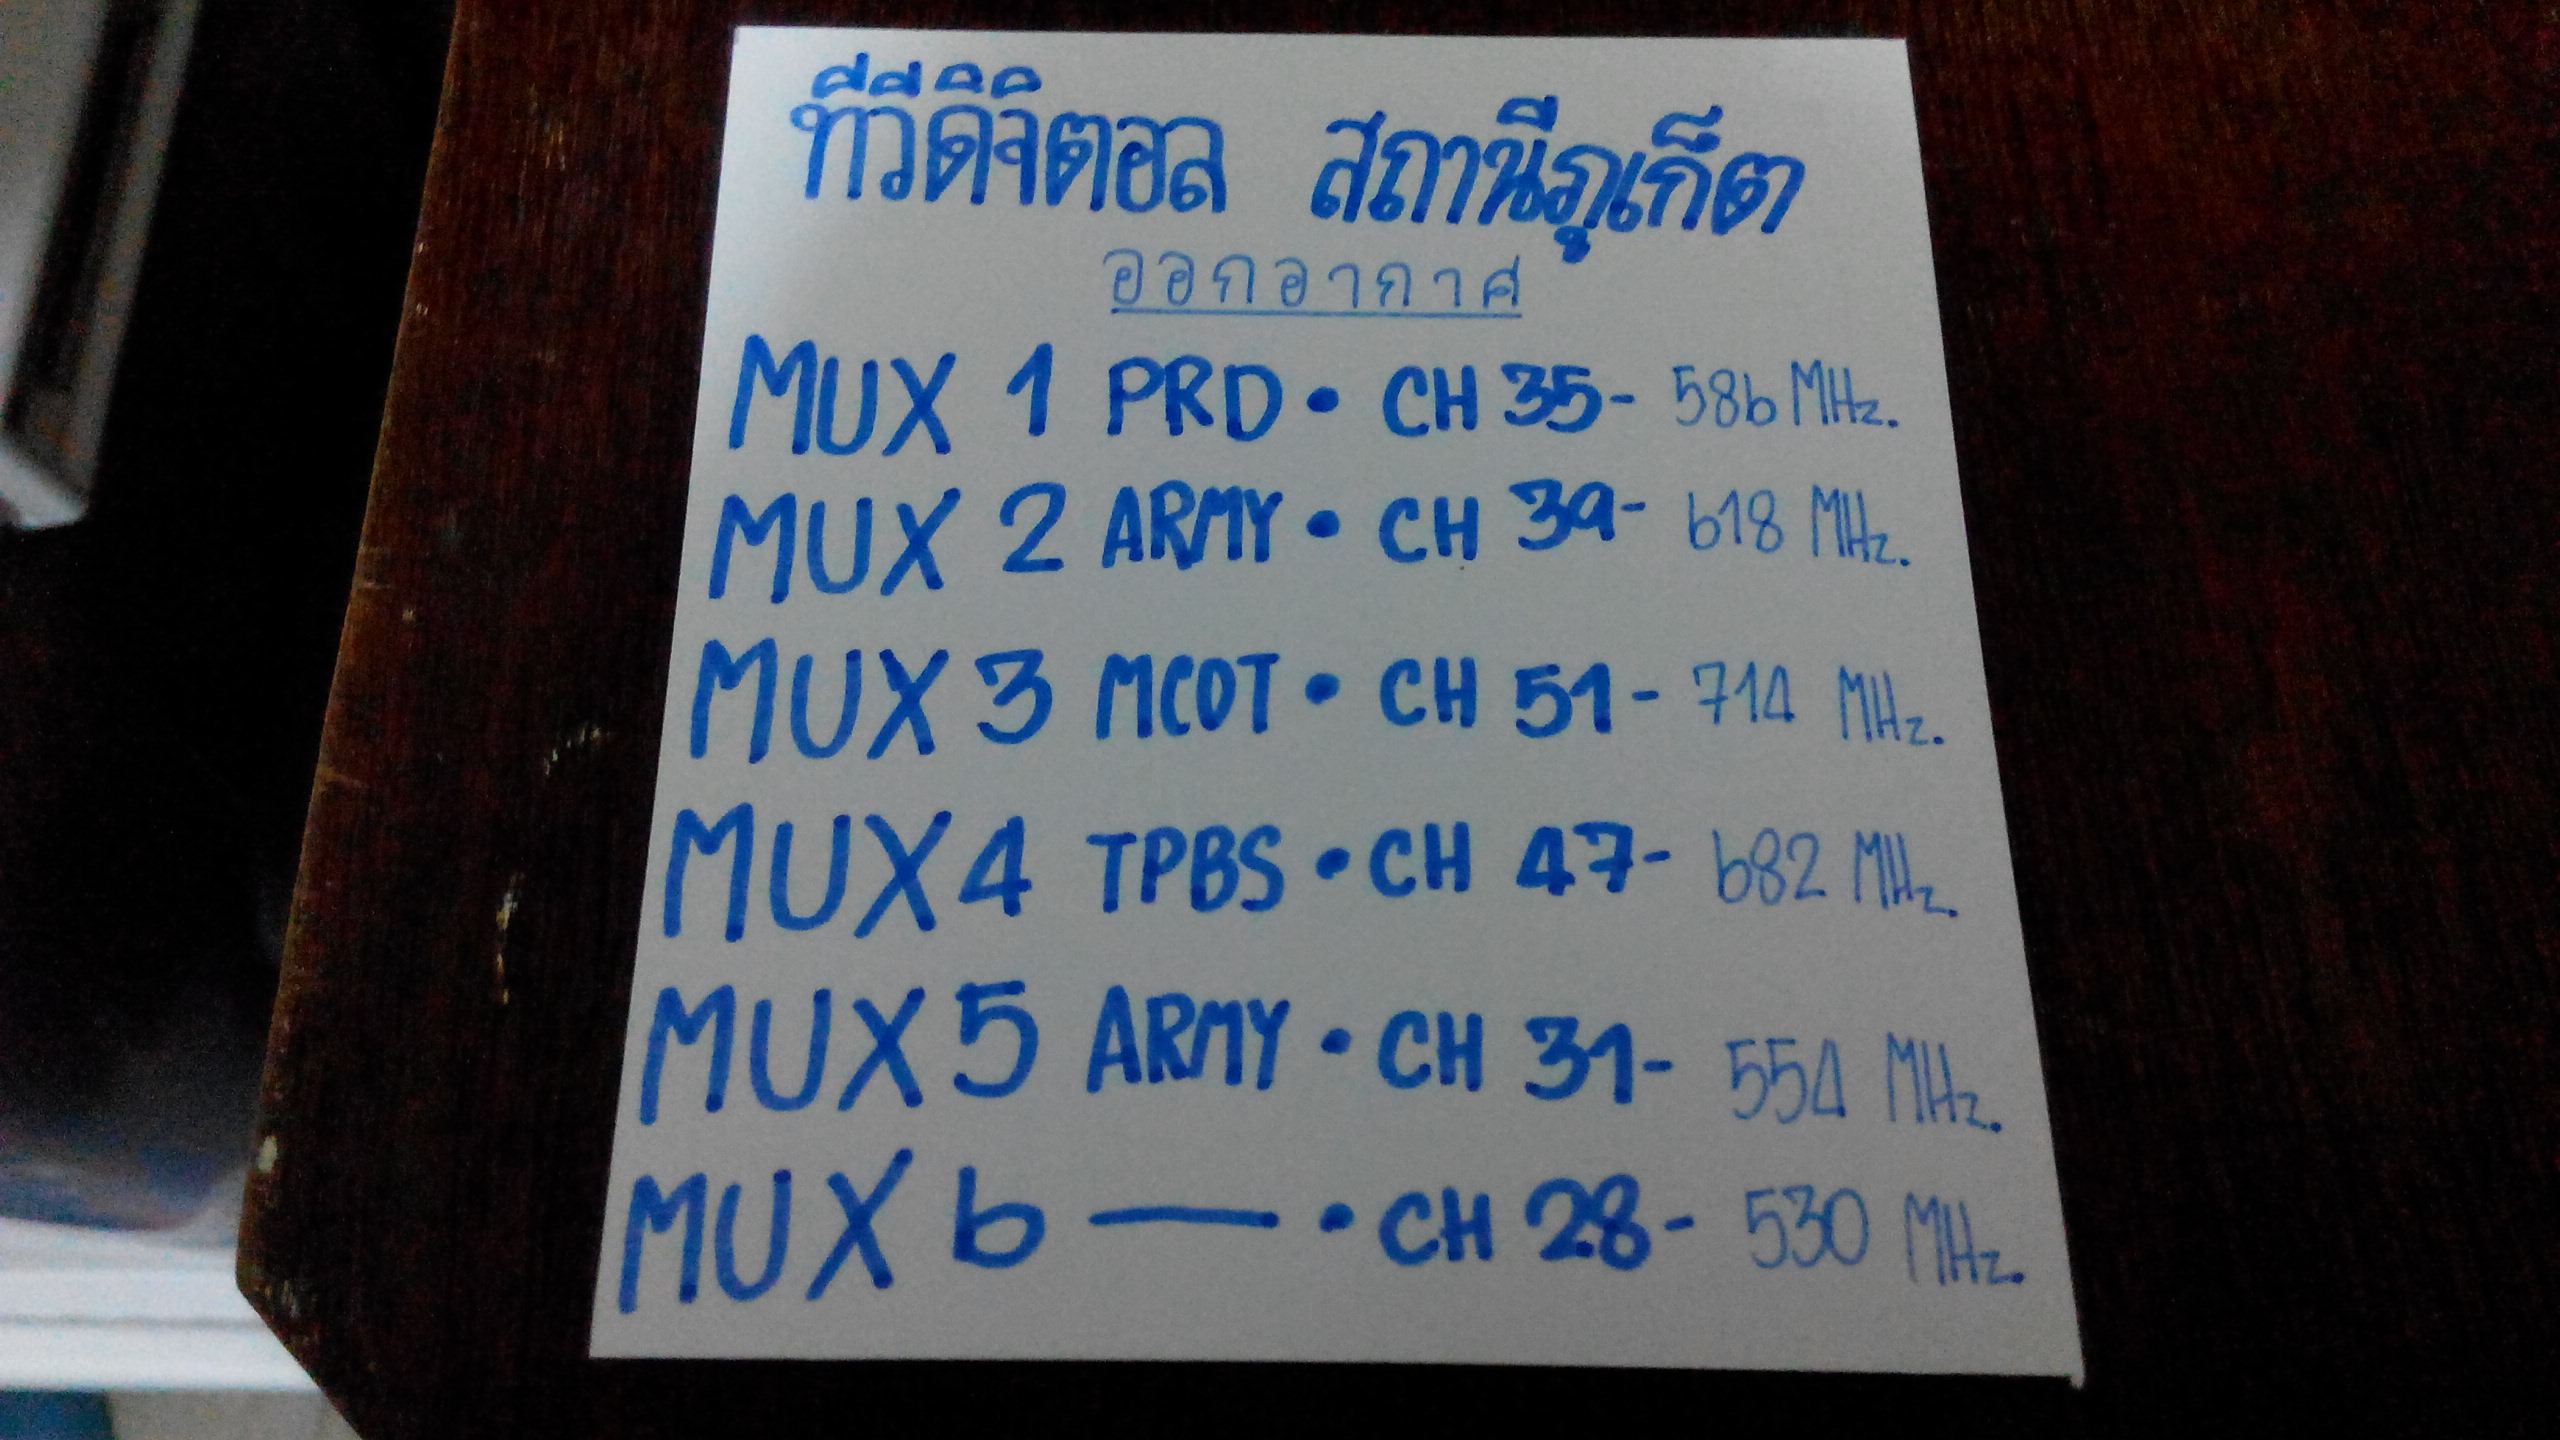 ทีวีดิจิตอล สถานีภูเก็ต
ออกอากาศ
MUX 1 PRD • CH 35 - 586 MHz.
MUX 2 ARMY • CH 39 - 618 MHz.
MUX 3 MCOT • CH 51 - 714 MHz.
MUX 4 TPBS • CH 47 - 682 MHz.
MUX 5 ARMY • CH 31 - 554 MHz.
MUX 6 — • CH 28 - 530 MHz.